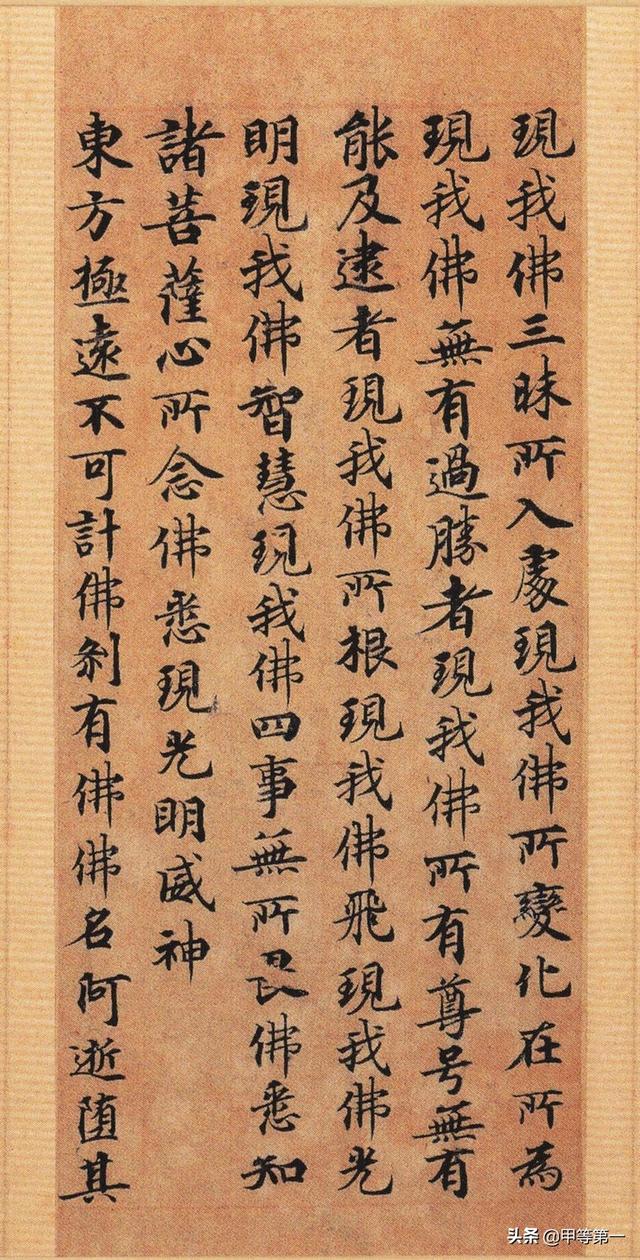 現我佛三昧所入處現我佛所變化在所為
現我佛無有過勝者現我佛所有尊号無有
能及逮者現我佛所根現我佛飛現我佛光
明現我佛智慧現我佛四事無所畏佛悉知
諸菩薩心所念佛悉現光明威神
東方極遠不可計佛剎有佛佛名阿逝堕其
头条 @甲等第一